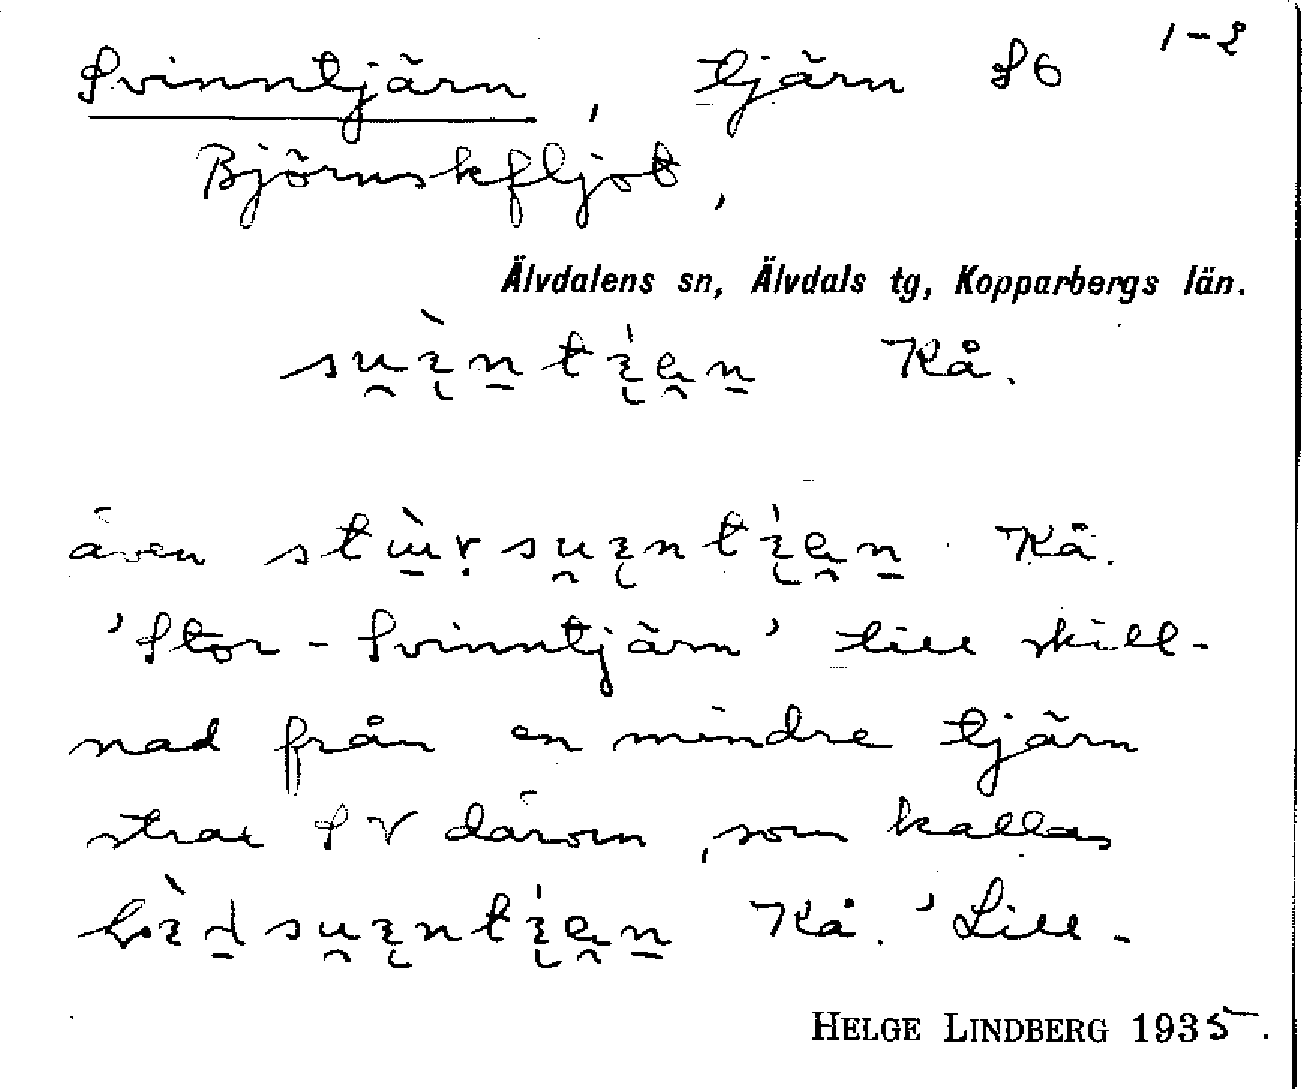 1-2
Svinntjärn, tjärn SO
Björnskfljot,
Älvdalens sn, Älvdals tg, Kopparbergs län.
Kå.
även Kå.
'Stor-Svinntjärn' till skill-
nad från en mindre tjärn
strax SV därom, som kallas
Kå. 'Lill-
HELGE LINDBERG 1935.